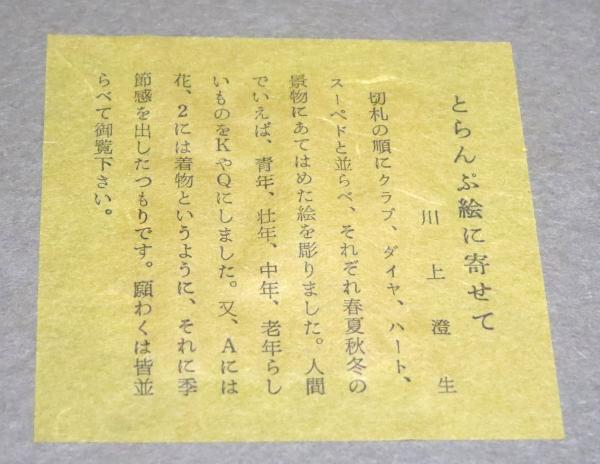 とらんぷ絵に寄せて
川上澄生
切札の順にクラブ、ダイヤ、ハート、
スーペドと並らべ、それぞれ春夏秋冬の
景物にあてはめた絵を彫りました。人間
でいえば、青年、壮年、中年、老年らし
いものをKやQにしました。又、Aには
花、2には着物というように、それに季
節感を出したつもりです。願わくは皆並
らべて御覧下さい。